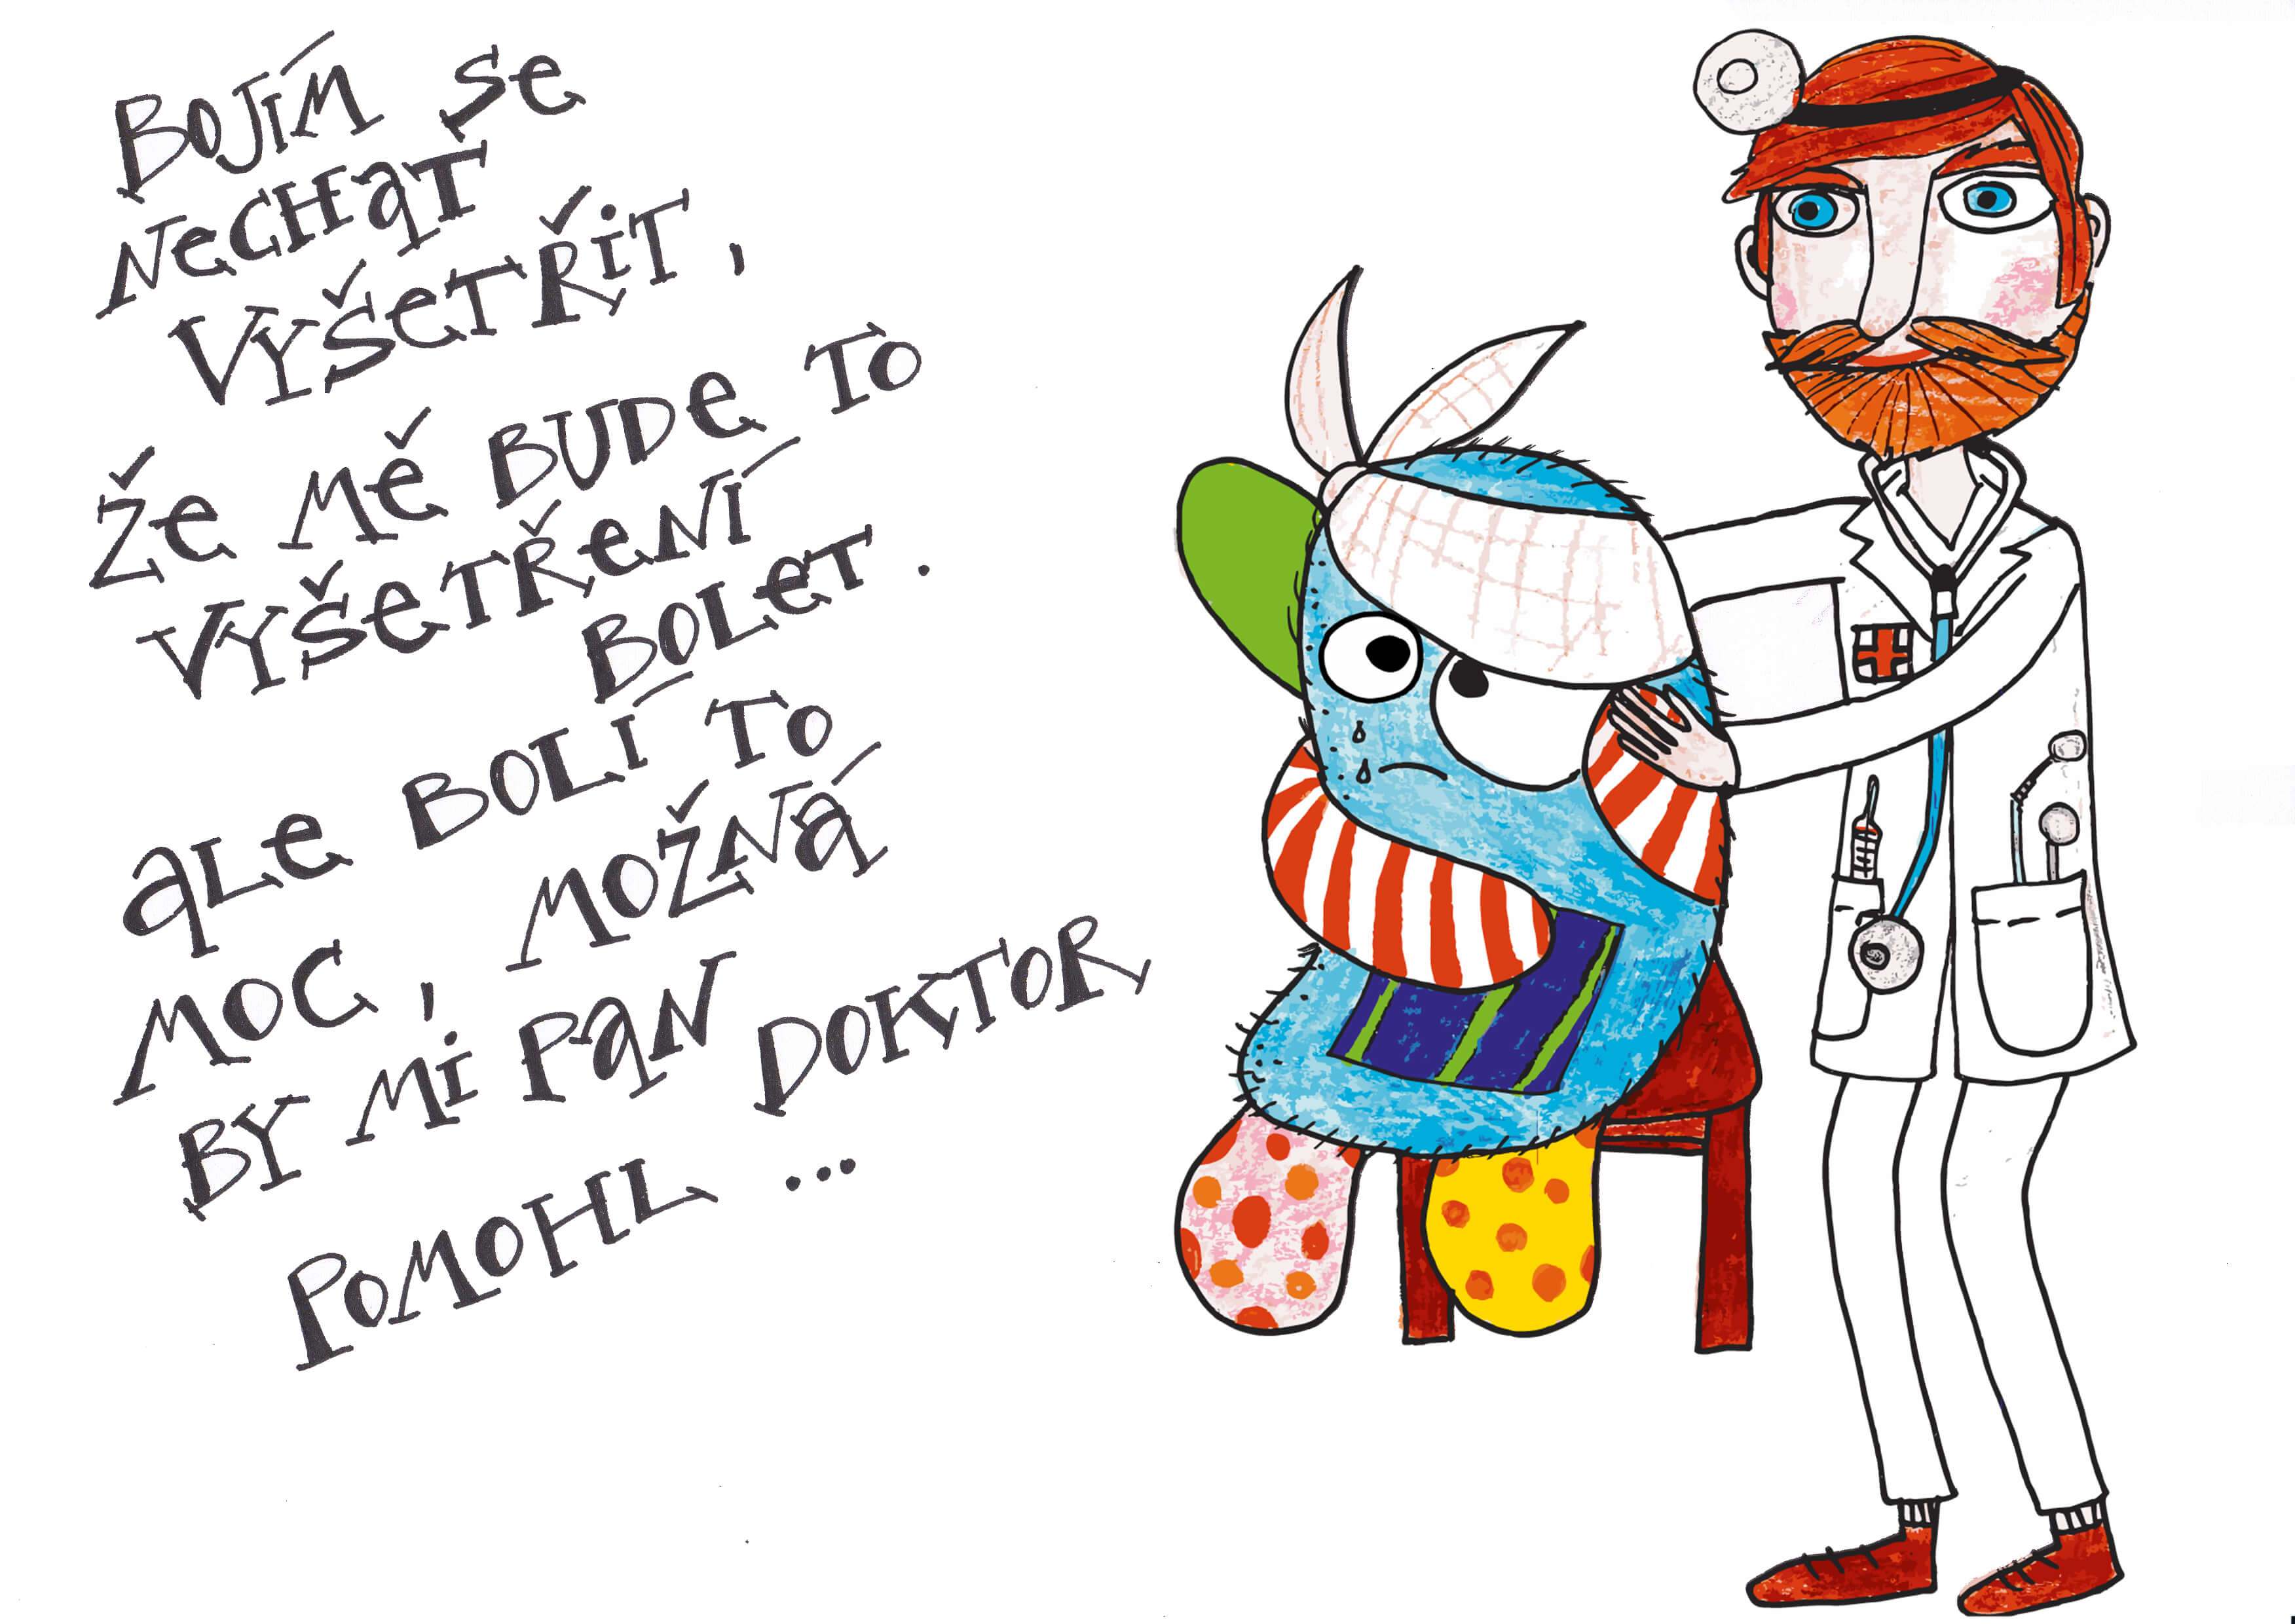 BOJÍM SE
NECHAT
VYŠETŘIT,
ŽE MĚ BUDE TO
VYŠETŘENÍ
BOLET.
ALE BOLÍ TO
MOC, MOŽNÁ
BY MI PAN DOKTOR
POMOHL ...